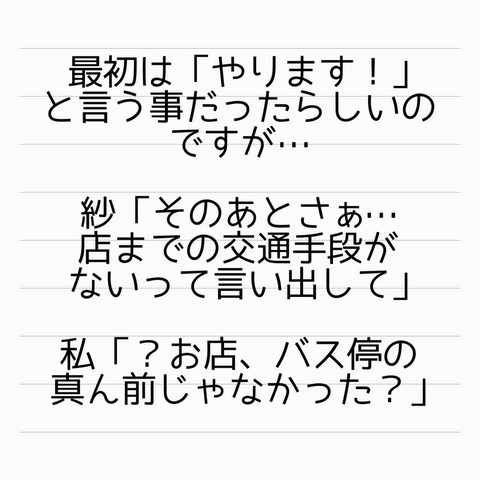 最初は「やります！」
と言う事だったらしいの
ですが…
紗「そのあとさぁ…
店までの交通手段が
ないって言い出して」
私「？お店、バス停の
真ん前じゃなかった？」